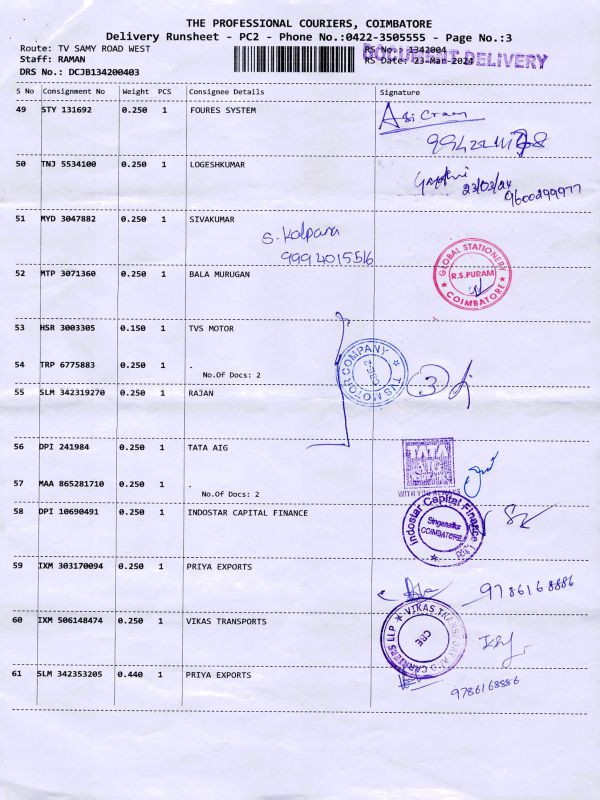 THE PROFESSIONAL COURIERS, COIMBATORE
Delivery Runsheet - PC2 - Phone No.:0422-3505555 - Page No.:3
Route: TV SAMY ROAD WEST RS No.: 1342004
DOCUMENT DELIVERY
Staff: RAMAN RS Date: 23-Mar-2024
DRS No.: DCJB134200403
S No Consignment No Weight PCS Consignee Details Signature
49 STY 131692 0.250 1 FOURES SYSTEM
50 TNJ 5534100 0.250 1 LOGESHKUMAR
23/03/24
9600299977
51 MYD 3047882 0.250 1 SIVAKUMAR
S. Kalpana
9994015516
52 MTP 3071360 0.250 1 BALA MURUGAN
GLOBAL STATIONERY
R.S.PURAM
COIMBATORE
53 HSR 3003305 0.150 1 TVS MOTOR
TVS MOTOR COMPANY
54 TRP 6775883 0.250 1 .
No.Of Docs: 2
3
55 SLM 342319270 0.250 1 RAJAN
56 DPI 241984 0.250 1 TATA AIG
TATA
AIG
WITH YOU ALWAYS
57 MAA 865281710 0.250 1 .
No.Of Docs: 2
58 DPI 10690491 0.250 1 INDOSTAR CAPITAL FINANCE
Indostar Capital Finance
Singanallur
COIMBATORE
59 IXM 303170094 0.250 1 PRIYA EXPORTS
9786168886
60 IXM 506148474 0.250 1 VIKAS TRANSPORTS
VIKAS TRANSPORT AND CARRIERS LLP
CBE
61 SLM 342353205 0.440 1 PRIYA EXPORTS
9786168886